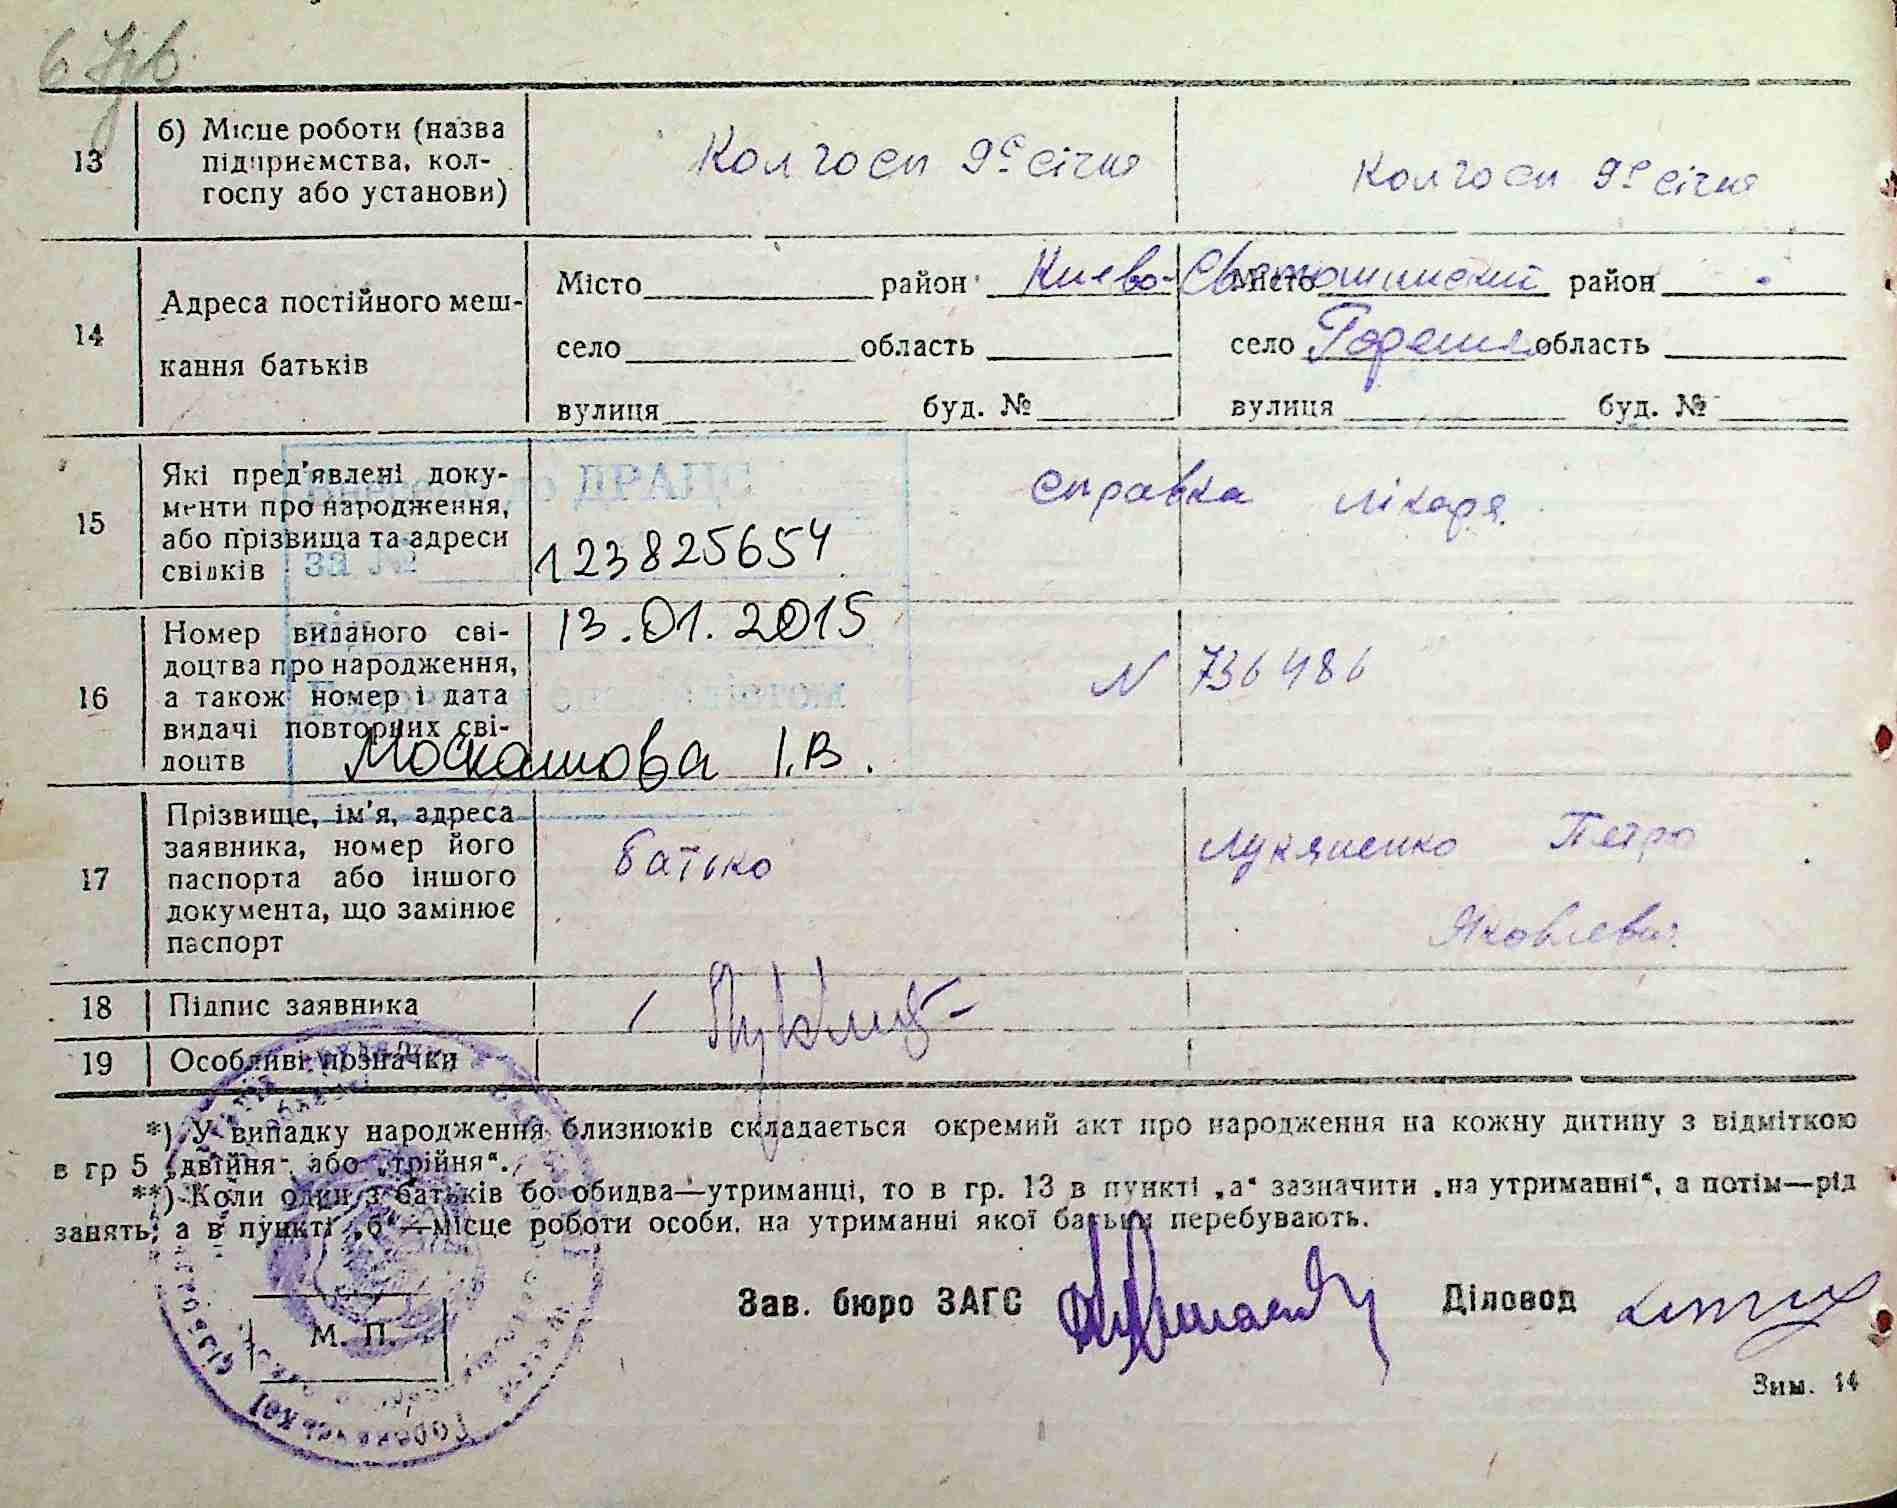 13
б) Місце роботи (назва
підприємства, кол-
госпу або установи)
Колгосп 9е січня
Колгосп 9е січня
14
Адреса постійного меш-
кання батьків
Місто район Києво-Святошинский Місто район
село область село Горенка область
вулиця буд. № вулиця буд. №
15
Які пред'явлені доку-
менти про народження,
або прізвища та адреси
свідків
ДРАЦС
за №
123825654
справка лікаря
16
Номер виданого сві-
доцтва про народження,
а також номер і дата
видачі повторних сві-
доцтв
13.01.2015
N 736486
Москашова І.В.
17
Прізвище, ім'я, адреса
заявника, номер його
паспорта або іншого
документа, що замінює
паспорт
батько
Лукяненко Петро
Яковлевич
18
Підпис заявника
19
Особливі позначки
*) У випадку народження близнюків складається окремий акт про народження на кожну дитину з відміткою
в гр 5 „двійня“, або „трійня“.
**) Коли один з батьків бо обидва—утриманці, то в гр. 13 в пункті „а“ зазначити „на утриманні“, а потім—рід
занять, а в пункті „б“—місце роботи особи, на утриманні якої батьки перебувають.
Зав. бюро ЗАГС
Діловод
М. П.
Зим. 14